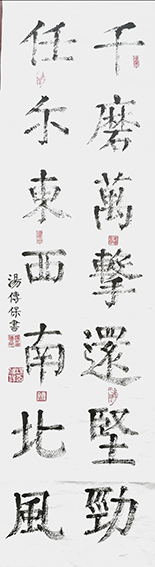 千磨萬擊還堅勁
任尒東西南北風
湯傳保書